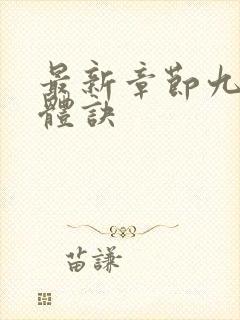 最新章節九
體訣
苗謙